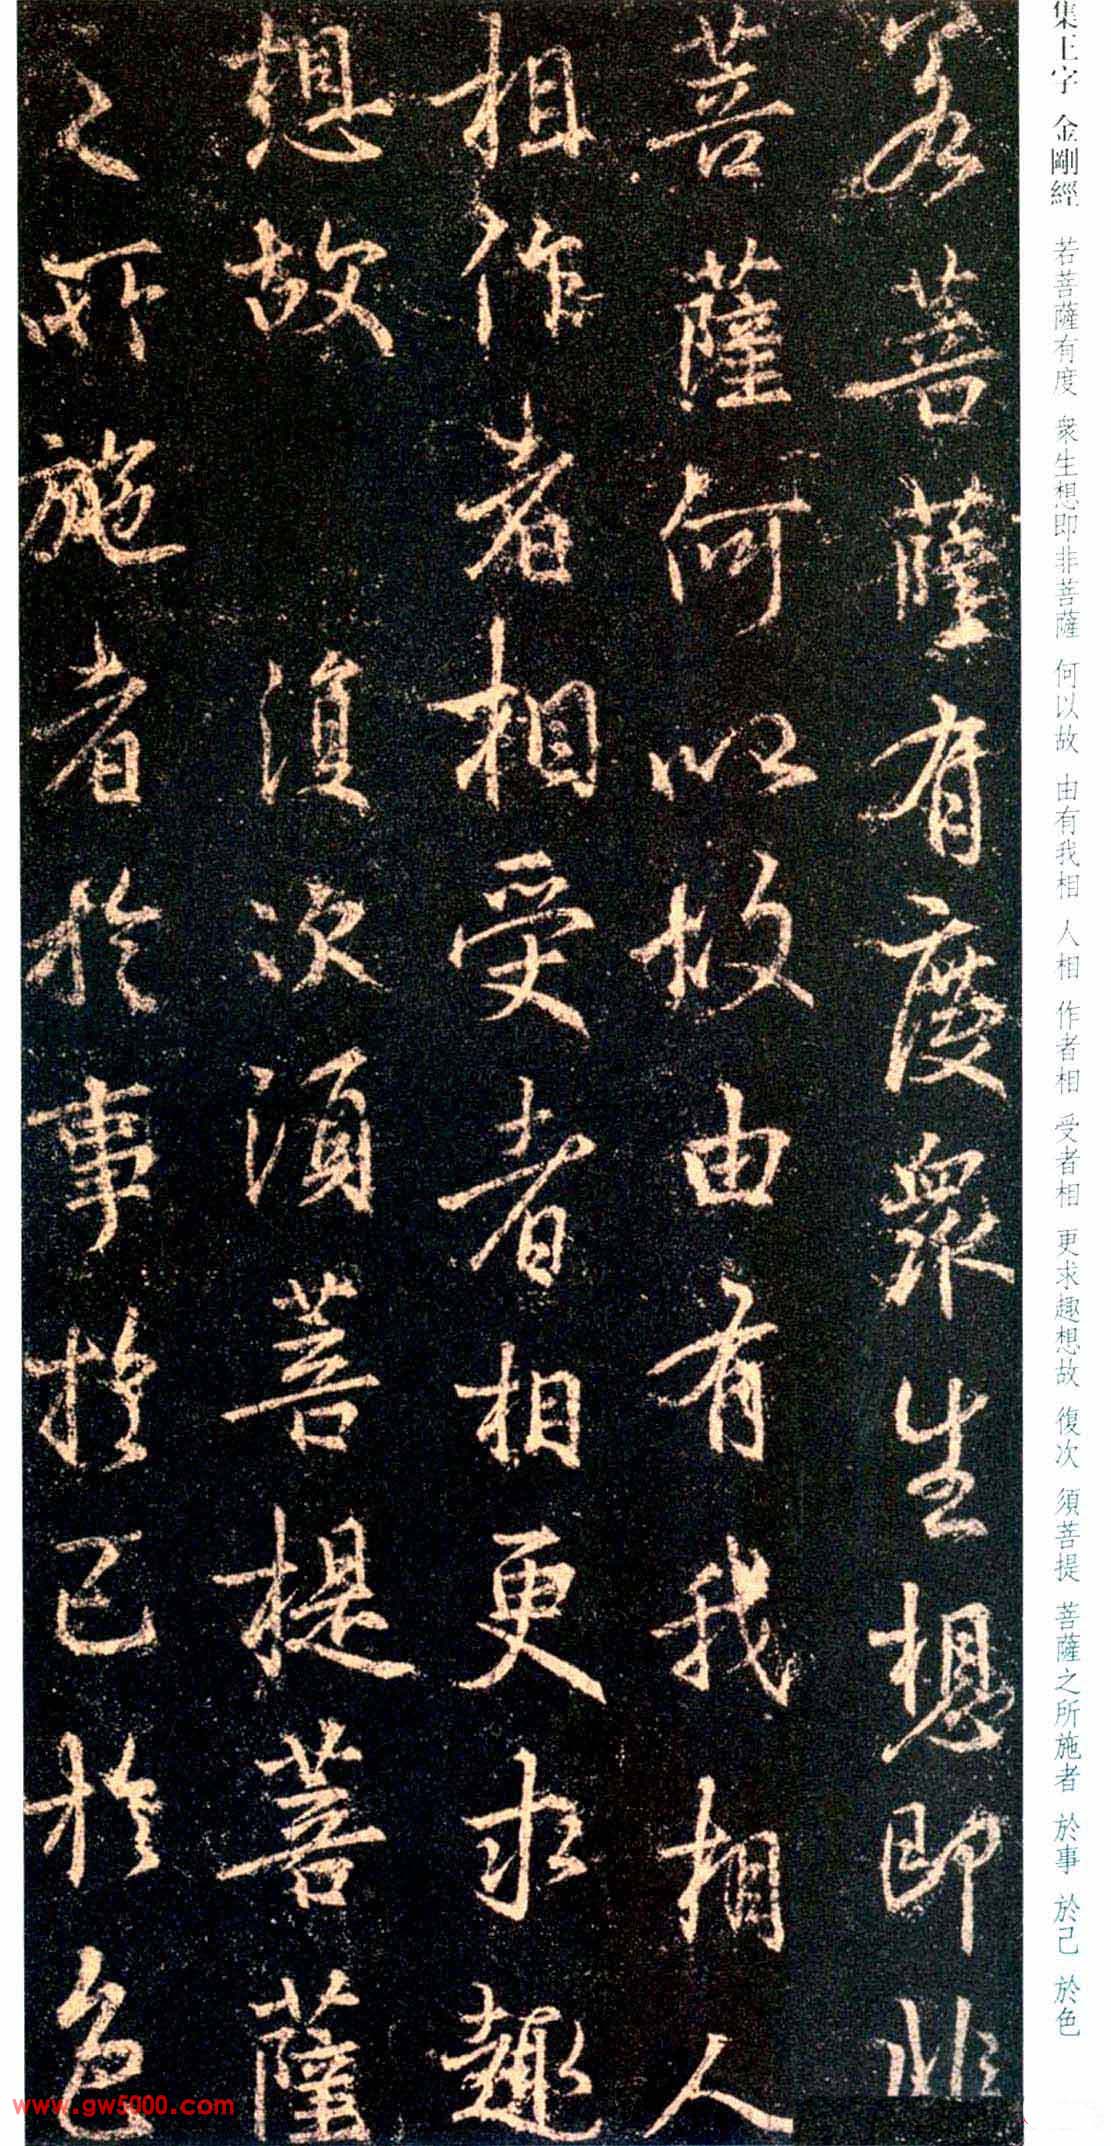 集王字 金剛經 若菩薩有度 衆生想即非菩薩 何以故 由有我相 人相 作者相 受者相 更求趣想故 復次 須菩提 菩薩之所施者 於事 於己 於色
若菩薩有度衆生想即非
菩薩何以故由有我相人
相作者相受者相更求趣
想故 復次須菩提菩薩
之所施者於事於己於色
www.gw5000.com